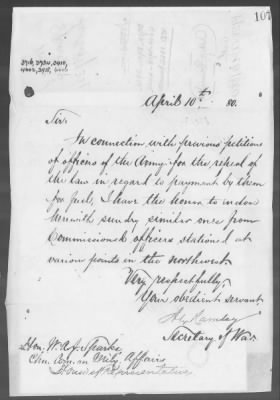 107
April 10th 80.
Sir:
In connection with previous petitions
of officers of the Army for the repeal of
the law in regard to payment by them
for fuel, I have the honor to inclose
herewith sundry similar ones from
Commissioned officers stationed at
various points in the northwest.
Very respectfully,
Your obedient servant
Alex Ramsey
Secretary of War
Hon. W. A. J. Sparks
Chn. Com. on Mil'y Affairs
House of Representatives